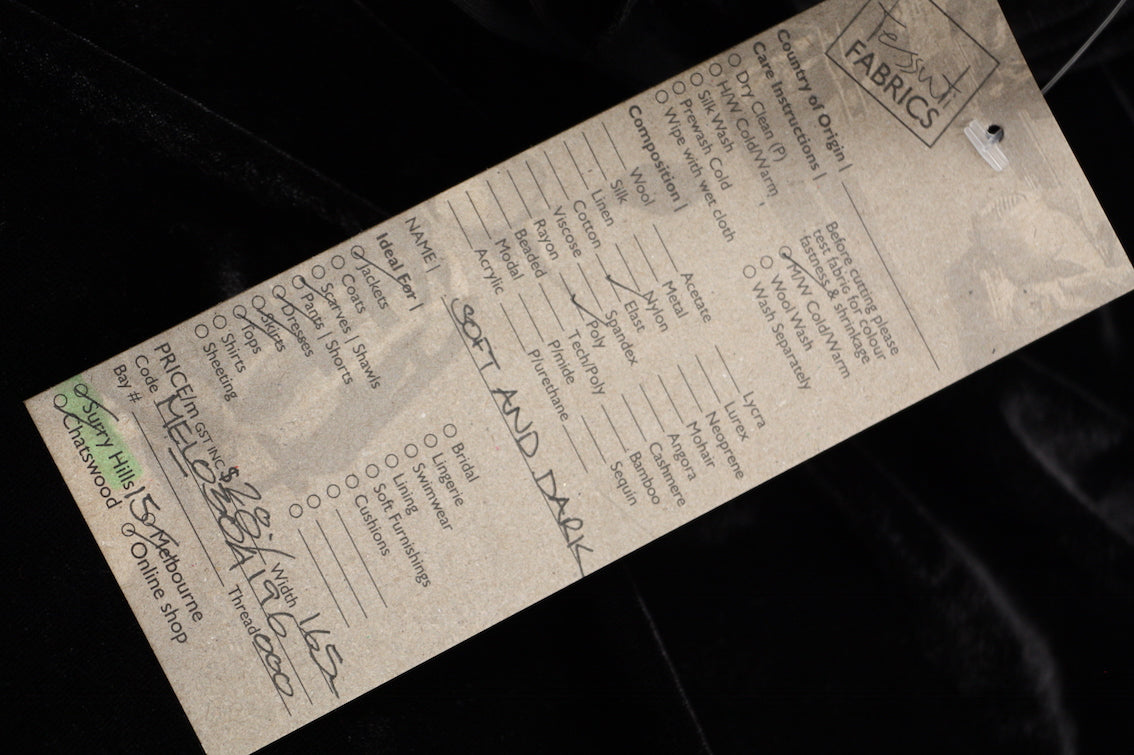 Tessuti
FABRICS
Country of Origin |
Care Instructions |
Dry Clean (P)
H/W Cold/Warm
Silk Wash
Prewash Cold
Wipe with wet cloth
Before cutting please
test fabric for colour
fastness & shrinkage
M/W Cold/Warm
Wool Wash
Wash Separately
Composition |
Wool
Silk
Linen
Cotton
Viscose
Rayon
Beaded
Modal
Acrylic
Acetate
Metal
Nylon
Elast
Spandex
Poly
Tech/Poly
P/mide
P/urethane
Lycra
Lurex
Neoprene
Mohair
Angora
Cashmere
Bamboo
Sequin
NAME | SOFT AND DARK
Ideal For |
Jackets
Coats
Scarves | Shawls
Pants | Shorts
Dresses
Skirts
Tops
Shirts
Sheeting
Bridal
Lingerie
Swimwear
Lining
Soft Furnishings
Cushions
PRICE/m GST INC $ Width 165
Code Thread 000
Bay #
Surry Hills 15 Melbourne
Chatswood Online shop